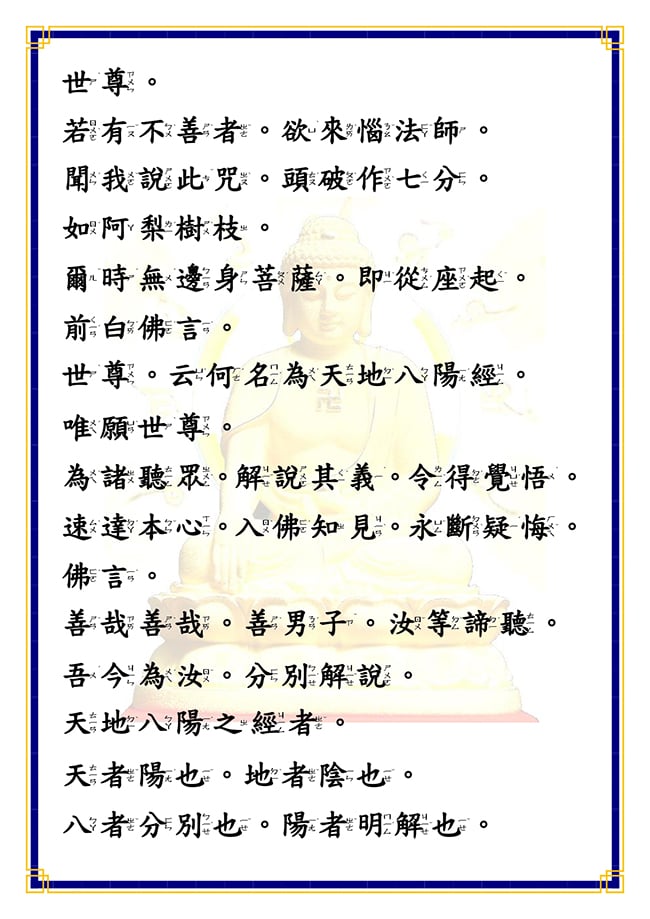 世尊。
若有不善者。欲來惱法師。
聞我說此咒。頭破作七分。
如阿梨樹枝。
爾時無邊身菩薩。即從座起。
前白佛言。
世尊。云何名為天地八陽經。
唯願世尊。
為諸聽眾。解說其義。令得覺悟。
速達本心。入佛知見。永斷疑悔。
佛言。
善哉善哉。善男子。汝等諦聽。
吾今為汝。分別解說。
天地八陽之經者。
天者陽也。地者陰也。
八者分別也。陽者明解也。